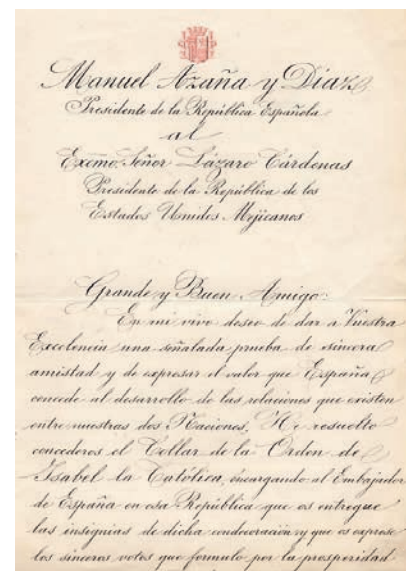 Manuel Azaña y Diaz
Presidente de la República Española
al
Excmo. Señor Lázaro Cárdenas
Presidente de la República de los
Estados Unidos Mejicanos
Grande y Buen Amigo:
En mi vivo deseo de dar a Vuestra
Excelencia una señalada prueba de sincera
amistad y de expresar el valor que España
concede al desarrollo de las relaciones que existen
entre nuestras dos Naciones, He resuelto
concederos el Collar de la Orden de
Isabel la Católica, encargando al Embajador
de España en esa República que os entregue
las insignias de dicha condecoración y que os exprese
los sinceros votos que formulo por la prosperidad